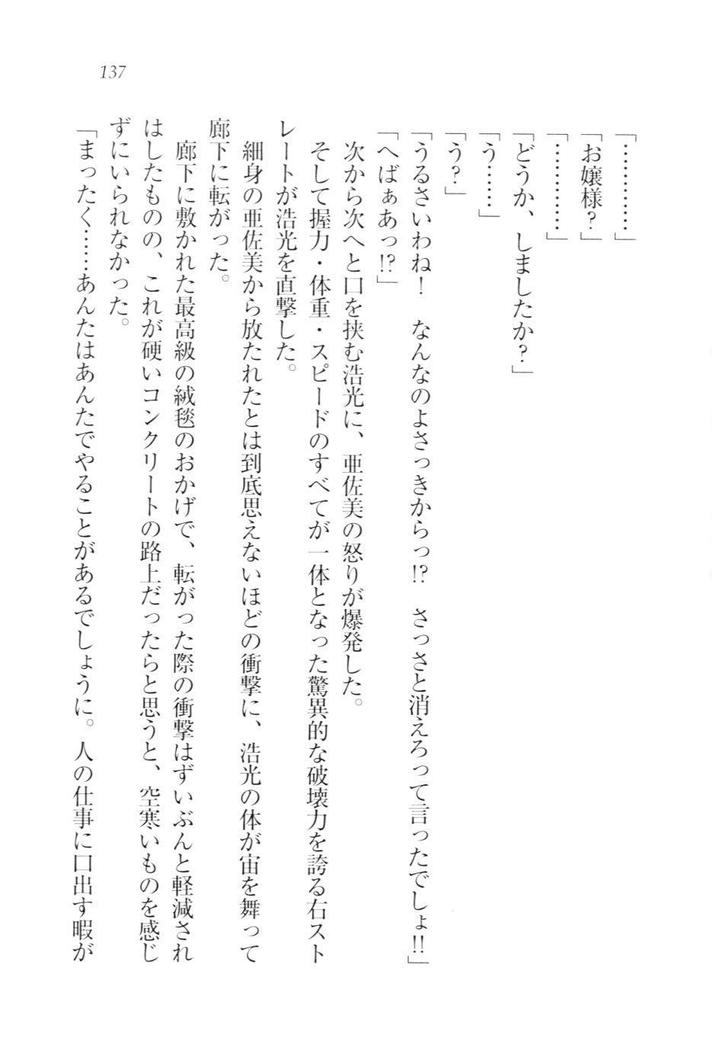 137
「…………」
「お嬢様？」
「…………」
「どうか、しましたか？」
「う……」
「う？」
「うるさいわね！　なんなのよさっきからっ!?　さっさと消えろって言ったでしょ!!」
「へばぁあっ!?」
次から次へと口を挟む浩光に、亜佐美の怒りが爆発した。
そして握力・体重・スピードのすべてが一体となった驚異的な破壊力を誇る右スト
レートが浩光を直撃した。
細身の亜佐美から放たれたとは到底思えないほどの衝撃に、浩光の体が宙を舞って
廊下に転がった。
廊下に敷かれた最高級の絨毯のおかげで、転がった際の衝撃はずいぶんと軽減され
はしたものの、これが硬いコンクリートの路上だったらと思うと、空寒いものを感じ
ずにいられなかった。
「まったく……あんたはあんたでやることがあるでしょうに。人の仕事に口出す暇が